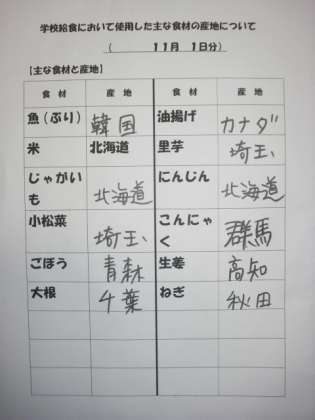 学校給食において使用した主な食材の産地について
（ 11月 1日分）
【主な食材と産地】
食 材 産 地 食 材 産 地
魚（ぶり） 韓国 油揚げ カナダ
米 北海道 里芋 埼玉
じゃがいも 北海道 にんじん 北海道
小松菜 埼玉 こんにゃく 群馬
ごぼう 青森 生姜 高知
大根 千葉 ねぎ 秋田